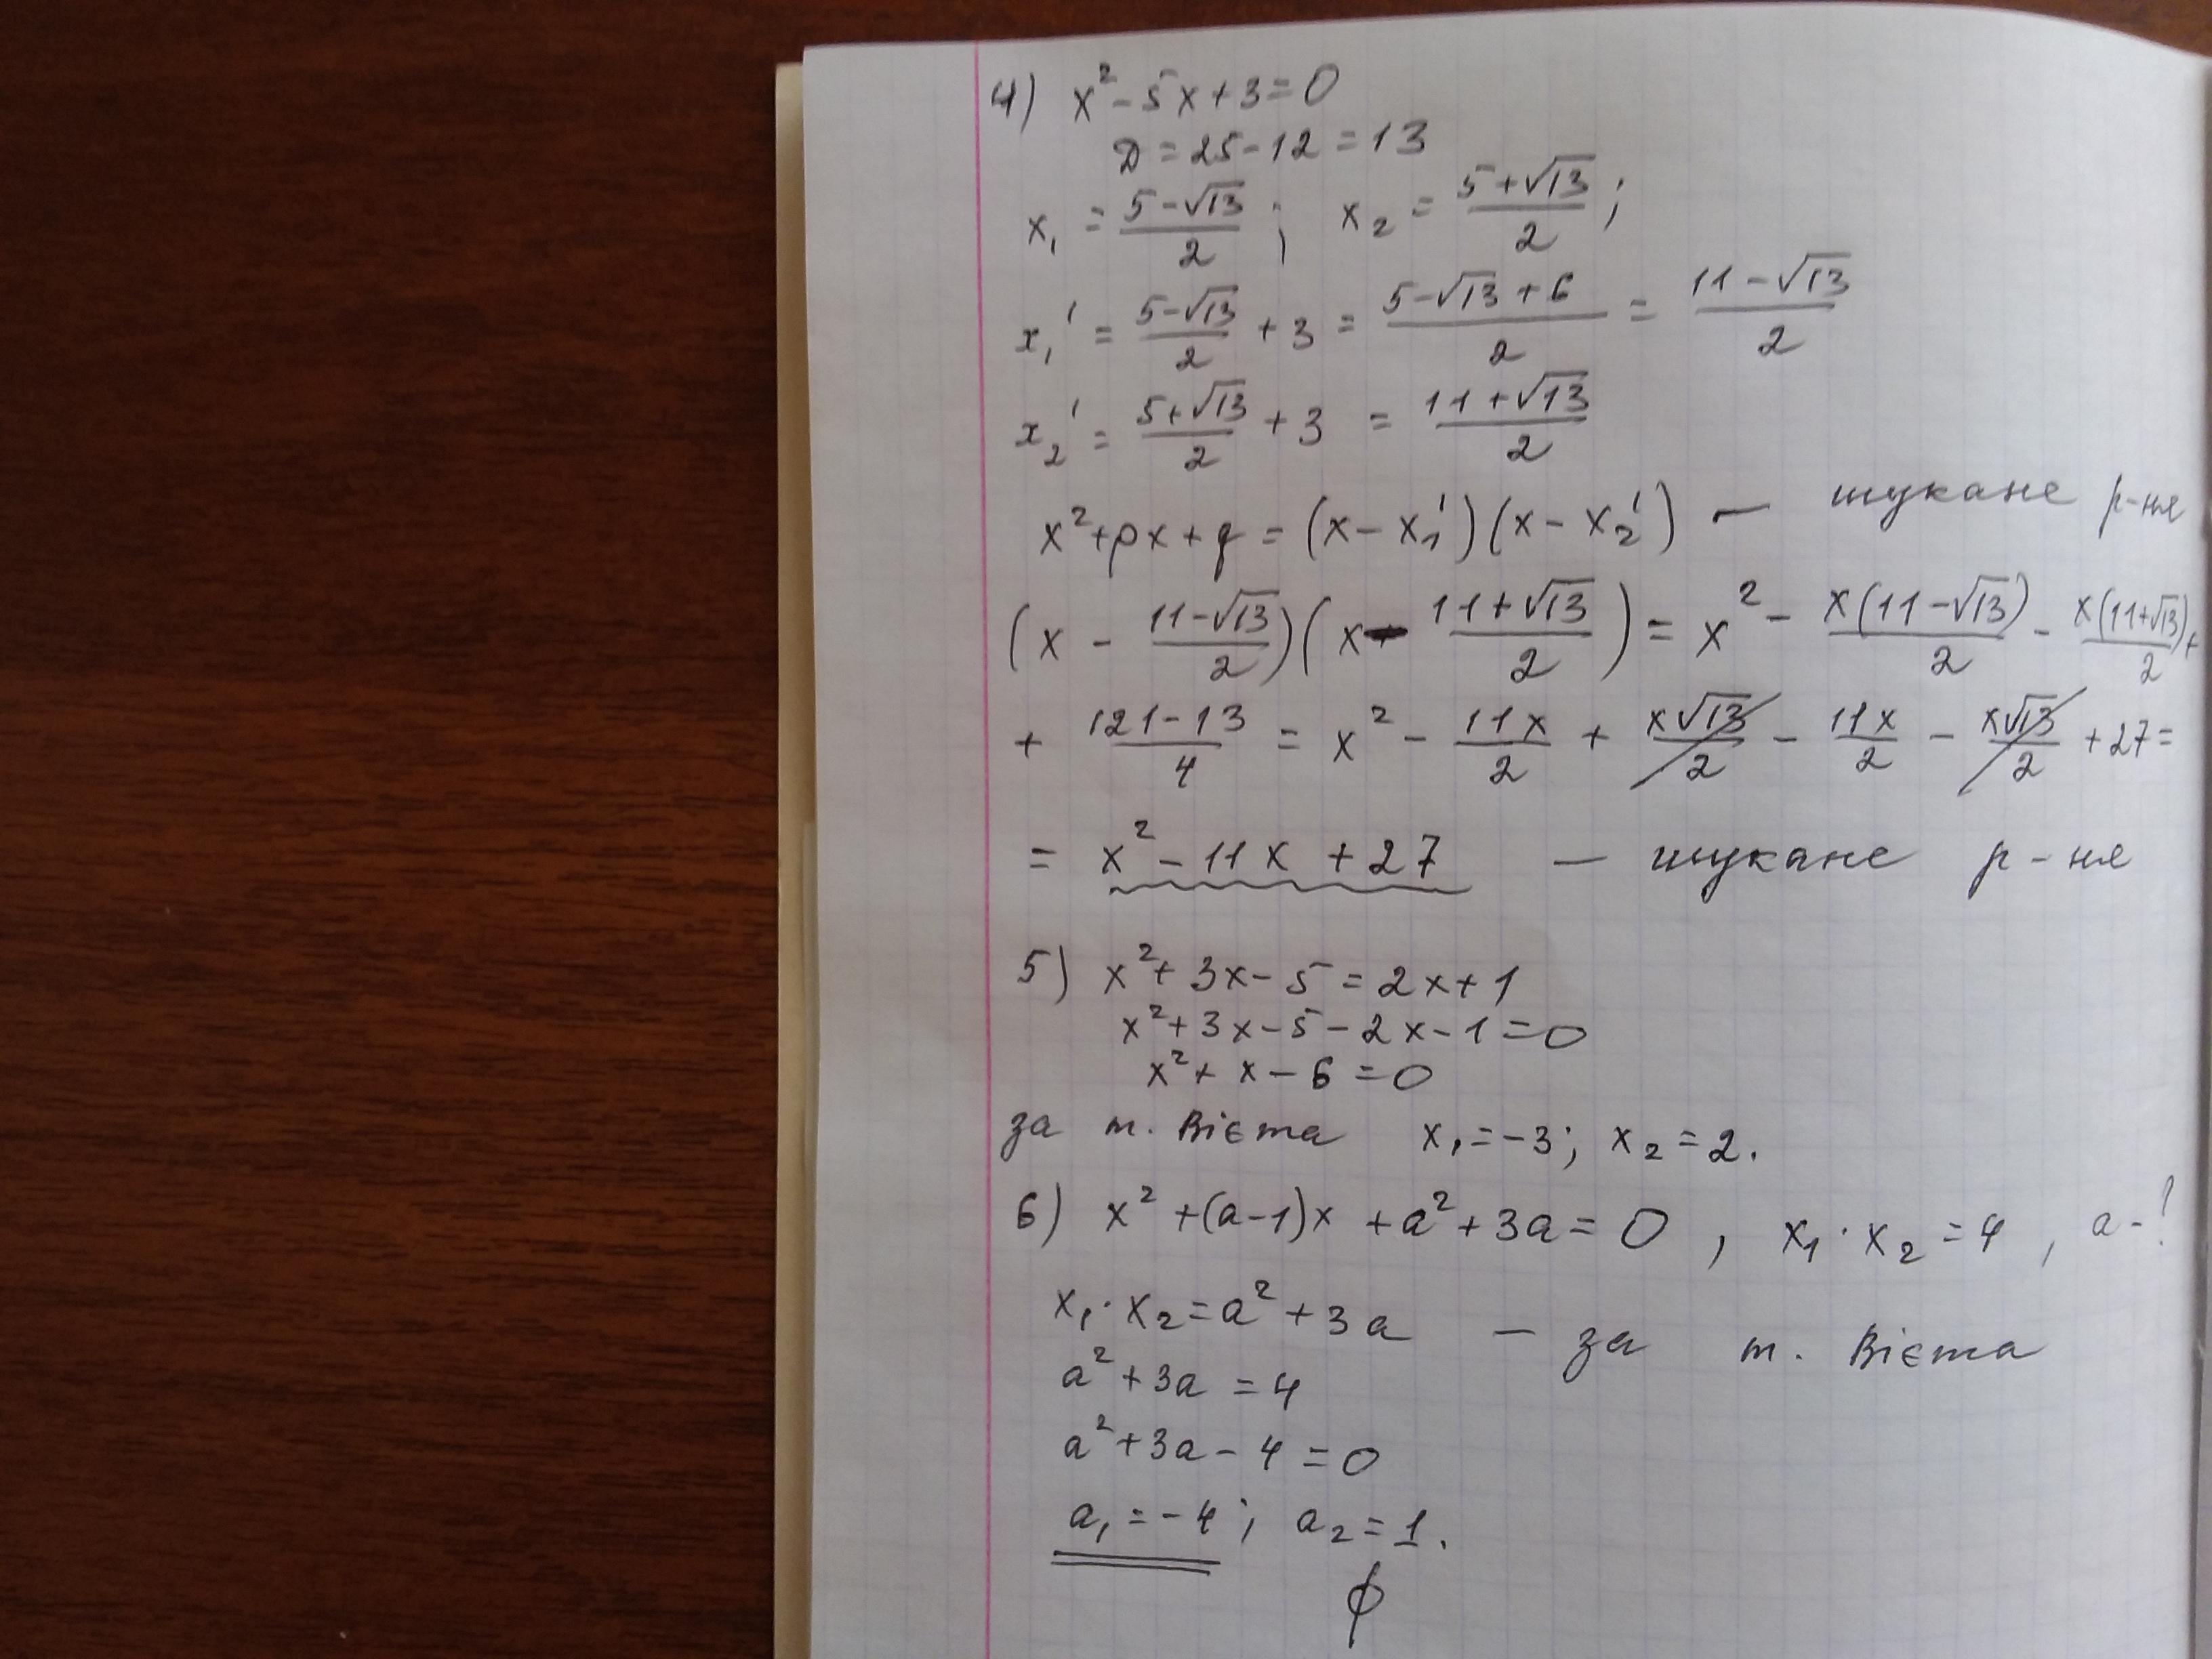 4) x² - 5x + 3 = 0
D = 25 - 12 = 13
x₁ = (5-√13)/2 ; x₂ = (5+√13)/2 ;
x₁' = (5-√13)/2 + 3 = (5-√13+6)/2 = (11-√13)/2
x₂' = (5+√13)/2 + 3 = (11+√13)/2
x² + px + q = (x - x₁')(x - x₂') — шукане р-ня
(x - (11-√13)/2)(x - (11+√13)/2) = x² - x(11-√13)/2 - x(11+√13)/2 +
+ (121-13)/4 = x² - 11x/2 + x√13/2 - 11x/2 - x√13/2 + 27 =
= x² - 11x + 27 — шукане р-ня
5) x² + 3x - 5 = 2x + 1
x² + 3x - 5 - 2x - 1 = 0
x² + x - 6 = 0
за т. Вієта x₁ = -3; x₂ = 2.
6) x² + (a-1)x + a² + 3a = 0, x₁ · x₂ = 4, a - ?
x₁ · x₂ = a² + 3a — за т. Вієта
a² + 3a = 4
a² + 3a - 4 = 0
a₁ = -4; a₂ = 1.
∅